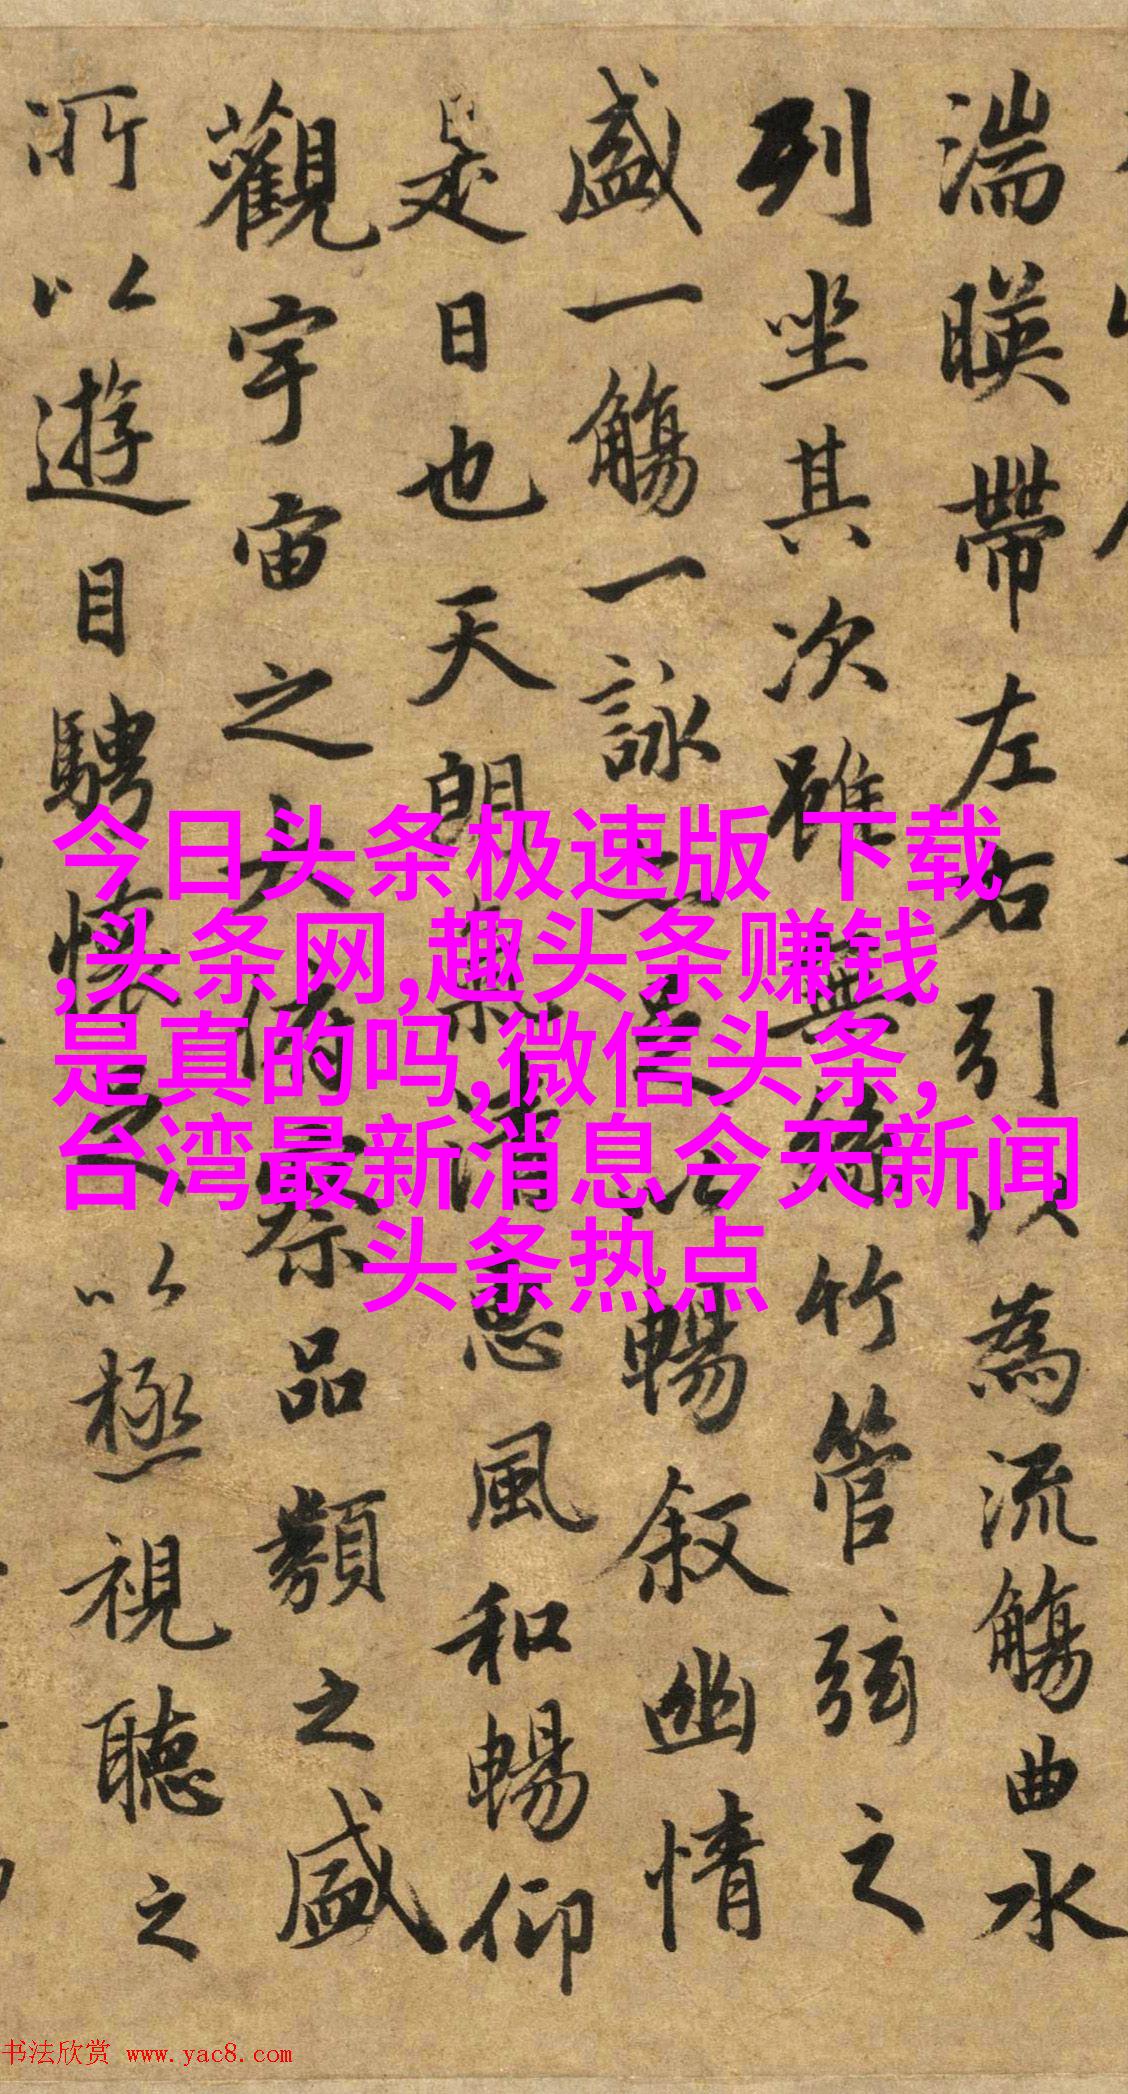 湍暎帶左右引以為流觴曲水
列坐其次雖無絲竹管弦之
盛一觴一詠亦足以暢叙幽情
是日也天朗氣清惠風和暢仰
觀宇宙之大俯察品類之盛
所以遊目騁懷足以極視聽之
今日头条极速版 下载
,头条网,趣头条赚钱
是真的吗,微信头条,
台湾最新消息今天新闻
头条热点
书法欣赏 www.yac8.com